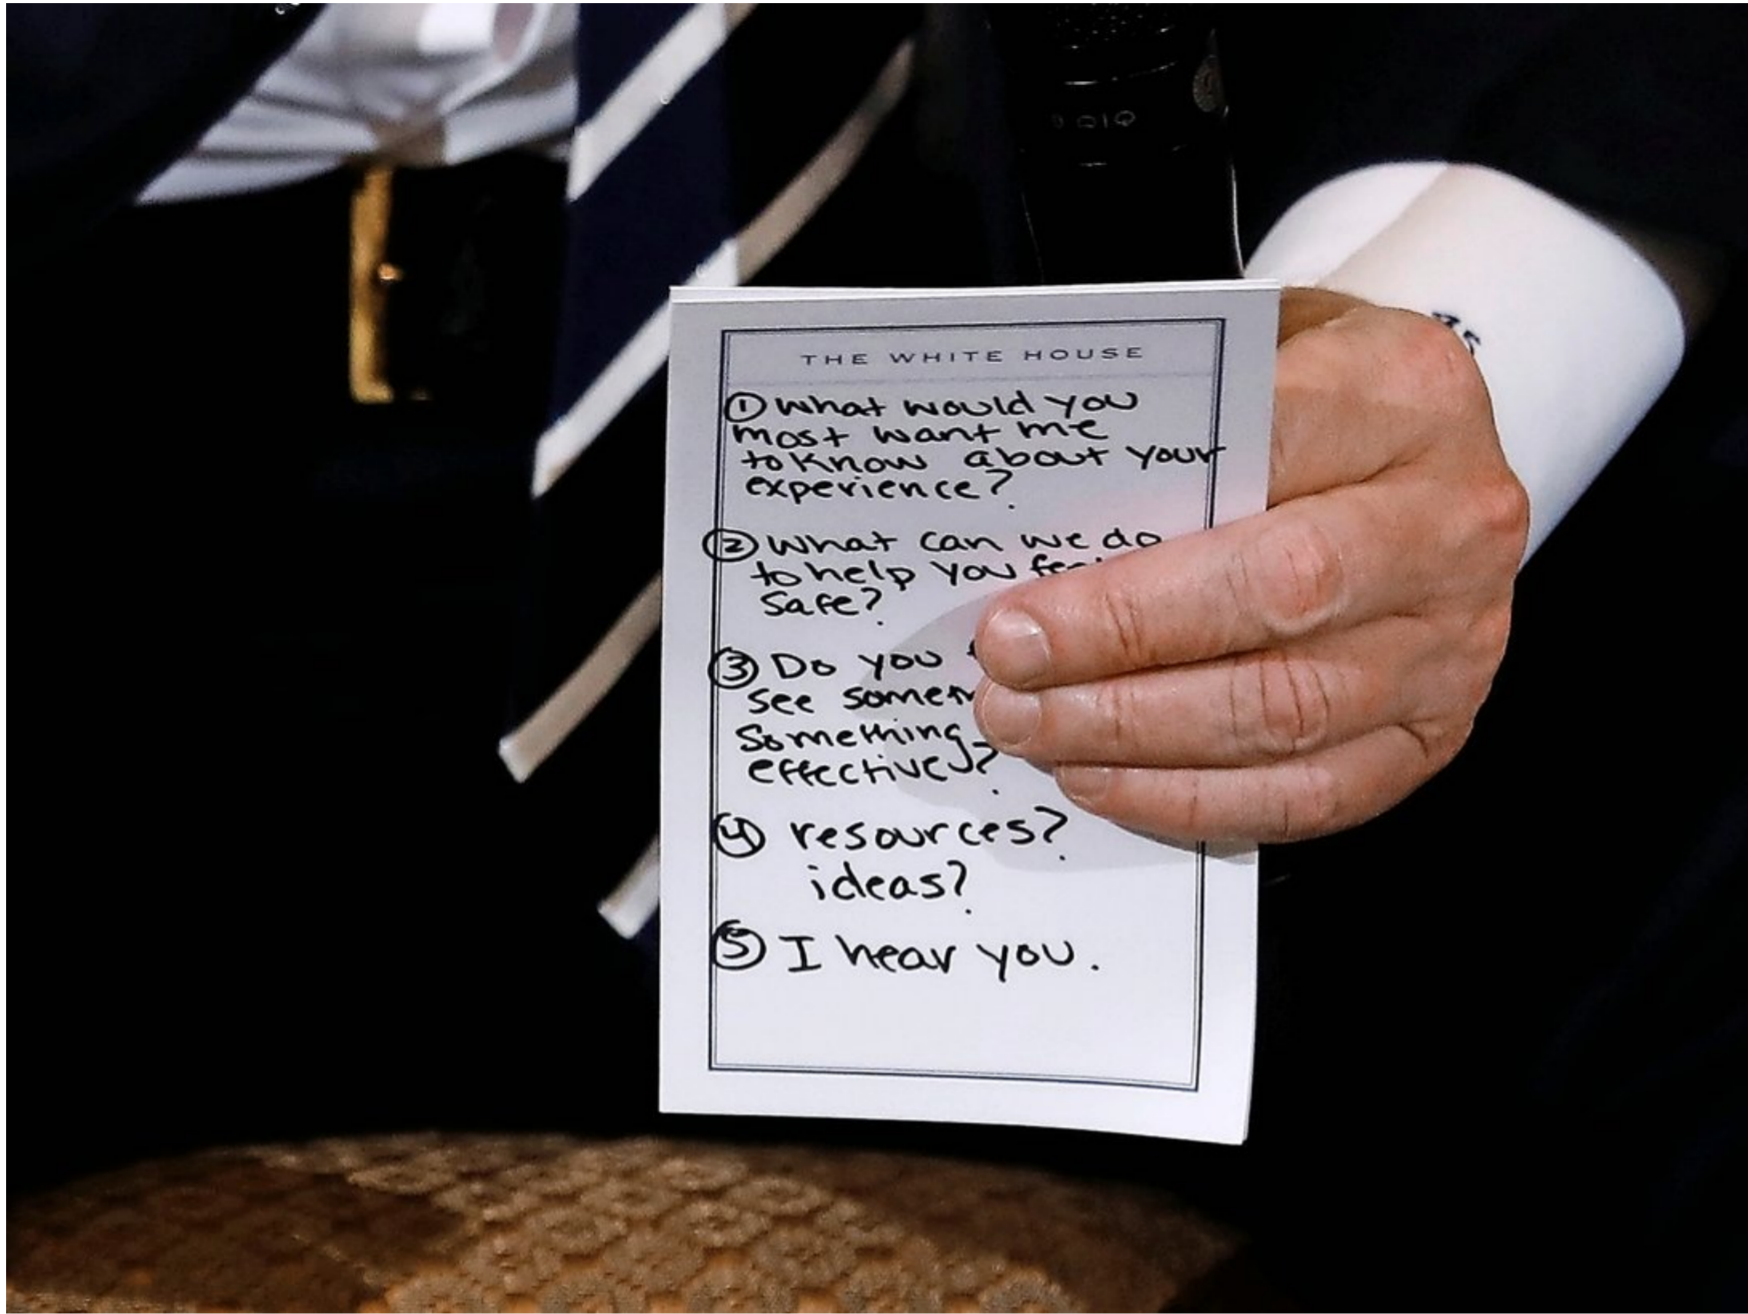 THE WHITE HOUSE
① What would you
most want me
to know about your
experience?
② What can we do
to help you
safe?
③ Do you
see
something
effective?
④ resources?
ideas?
⑤ I hear you.